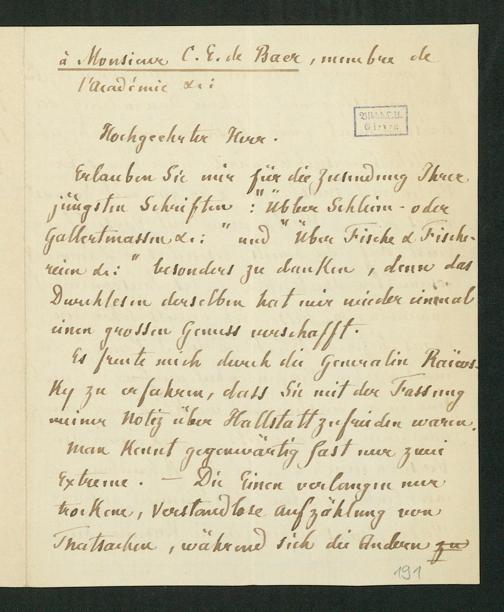 à Monsieur C. E. de Baer, membre de
l'Académie &c:
Bibl. J. L. U.
Giessen
Hochgeehrter Herr.
Erlauben Sie mir für die Zusendung Ihrer
jüngsten Schriften: "Über Schleim- oder
Gallertmassen &c:" und "Über Fische & Fische-
reien &c:" besonders zu danken, denn das
Durchlesen derselben hat mir wieder einmal
einen grossen Genuss verschafft.
Es freute mich durch die Generalin Raïevs-
ky zu erfahren, dass Sie mit der Fassung
meiner Notiz über Hallstatt zufrieden waren.
Man kennt gegenwärtig fast nur zwei
Extreme. — Die Einen verlangen nur
trockene, verstandlose Aufzählung von
Thatsachen, während sich die Andern zu
191